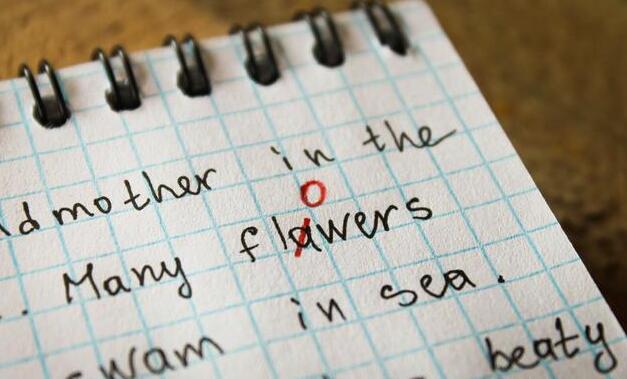 dmother in the
o
Many flawers
swam in sea.
beaty